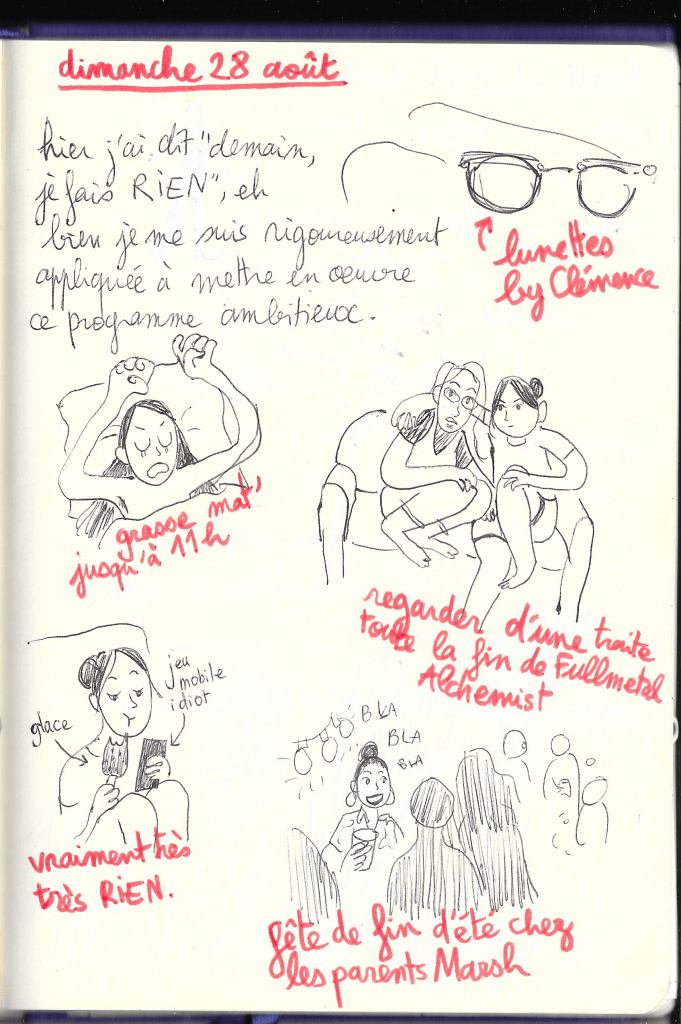 dimanche 28 août
hier j'ai dit "demain,
je fais RiEN", eh
bien je me suis rigoureusement
appliquée à mettre en oeuvre
ce programme ambitieux.
lunettes
by Clémence
grasse mat'
jusqu'à 11h
regarder d'une traite
toute la fin de Fullmetal
Alchemist
jeu
mobile
idiot
glace
vraiment très
très RiEN.
BLA
BLA
BLA
fête de fin d'été chez
les parents Marsh